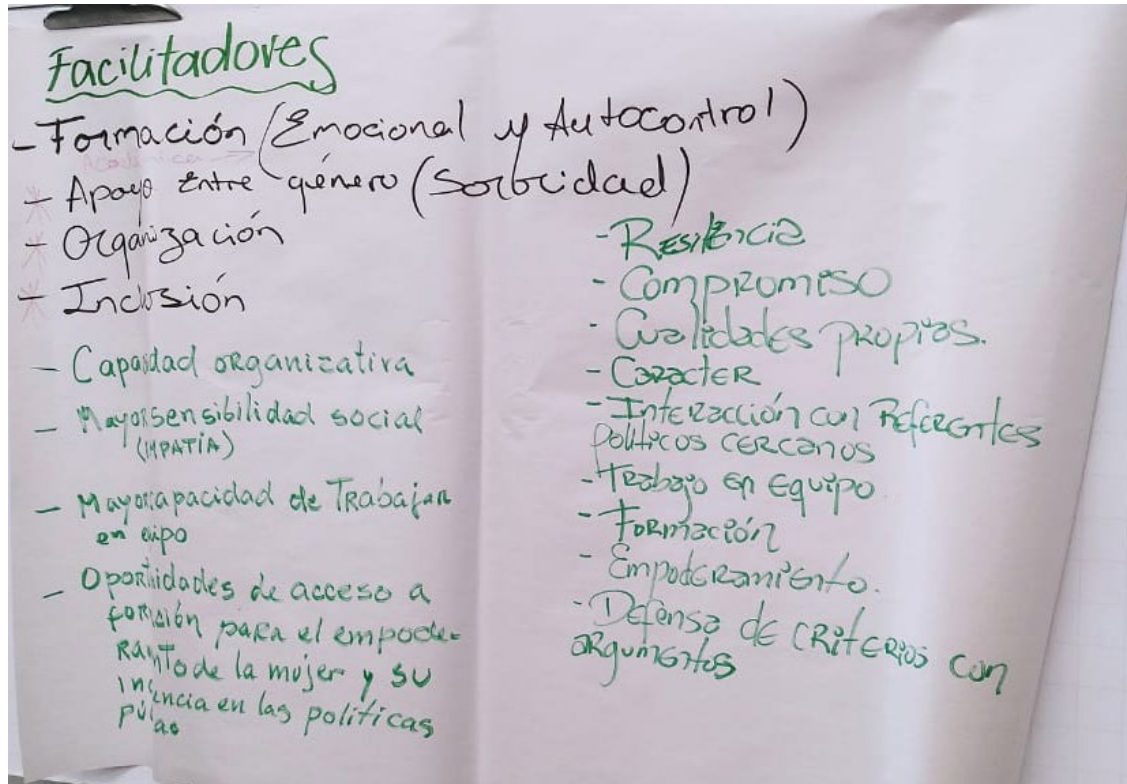 Facilitadores
- Formación (Emocional y Autocontrol)
Académica →
- Apoyo Entre género (Sororidad)
- Organización
- Inclusión
- Capacidad organizativa
- Mayor sensibilidad social
(MPATÍA)
- Mayor capacidad de Trabajar
en
- de acceso a
para el empode-
de la mujer y su
en las políticas
- Resiliencia
- Compromiso
- Cualidades propias.
- Caracter
- Interacción con Referentes
políticos cercanos
- Trabajo en Equipo
- Formación
- Empoderamiento.
- Defensa de CRITERIOS con
argumentos